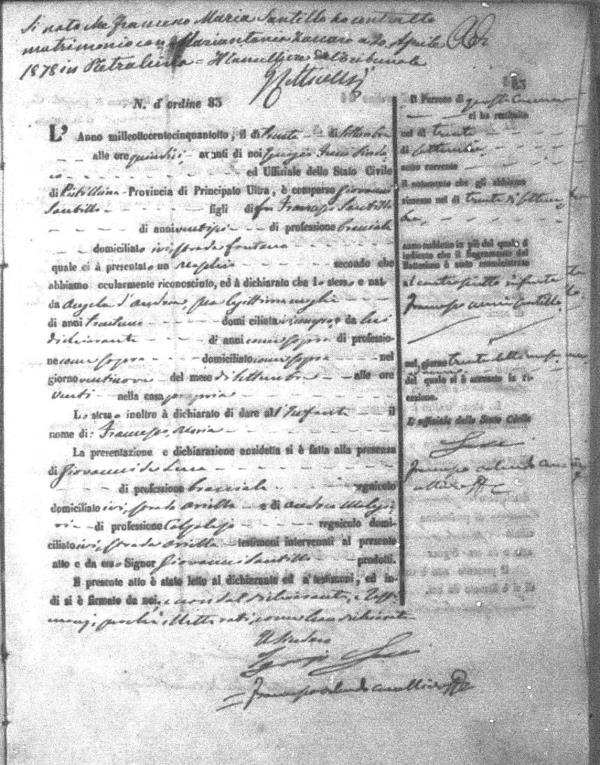 Si nota che Francesco Maria Santillo ha contratto
matrimonio con Mariantonia Zaccaro a 20 Aprile
1878 in Pietralcina = Il Cancelliere del Tribunale
N. d'ordine 83
L' Anno millottocentocinquantotto, il dì trenta di settembre
alle ore quindici avanti di noi Sindaco
ed Uffiziale dello Stato Civile
di Provincia di Principato Ultra, è comparso Giovanni
Santillo figli di fu Francesco Santillo
di anni ventisei di professione bracciale
domiciliato ivi strada fontana
quale ci à presentato un maschio secondo che
abbiamo ocularmente riconosciuto, ed à dichiarato che lo stesso è nato
da Angela d'Andrea, sua legittima moglie
di anni trentuno domiciliata da lui
dichiarante di anni come sopra di professio-
ne come sopra domiciliato come sopra nel
giorno ventinove del mese di settembre alle ore
venti nella casa propria
Lo stesso inoltre à dichiarato di dare all'Infante il
nome di: Francesco Maria
La presentazione e dichiarazione anzidetta si è fatta alla presenza
di Giovanni de Luca
di professione bracciale regnicolo
domiciliato ivi, strada e di Andrea
di professione Calzolajo regnicolo domi-
ciliato ivi, strada testimoni intervenuti al presente
atto e da esso Signor Giovanni Santillo prodotti.
Il presente atto è stato letto al dichiarante ed a' testimoni, ed in-
di si è firmato da noi, e non dal dichiarante, e testi-
monj, perchè illetterati come han dichiarato
Il Sindaco
83
Il Parroco di questo Comune
ci ha restituito
nel dì trenta
di settembre
anno corrente
il notamento che gli abbiamo
rimesso nel dì trenta di settem-
bre,
anno suddetto in piè del quale à
indicato che il Sagramento del
Battesimo è stato amministrato
al contrascritto infante
Francesco Maria Santillo
nel giorno trenta detto mese
del quale si è accusato la ri-
cezione.
L'uffiziale dello Stato Civile